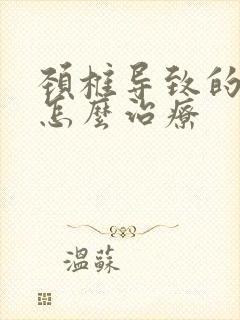 颈椎导致的
怎麼治療
温蘇